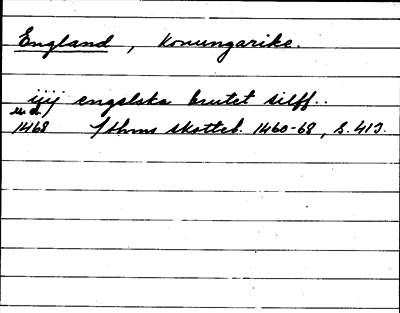 England, Konungarike.
iiij engelska brutet silff..
u. å.
1468 Sthms skotteb. 1460-68, S. 413.